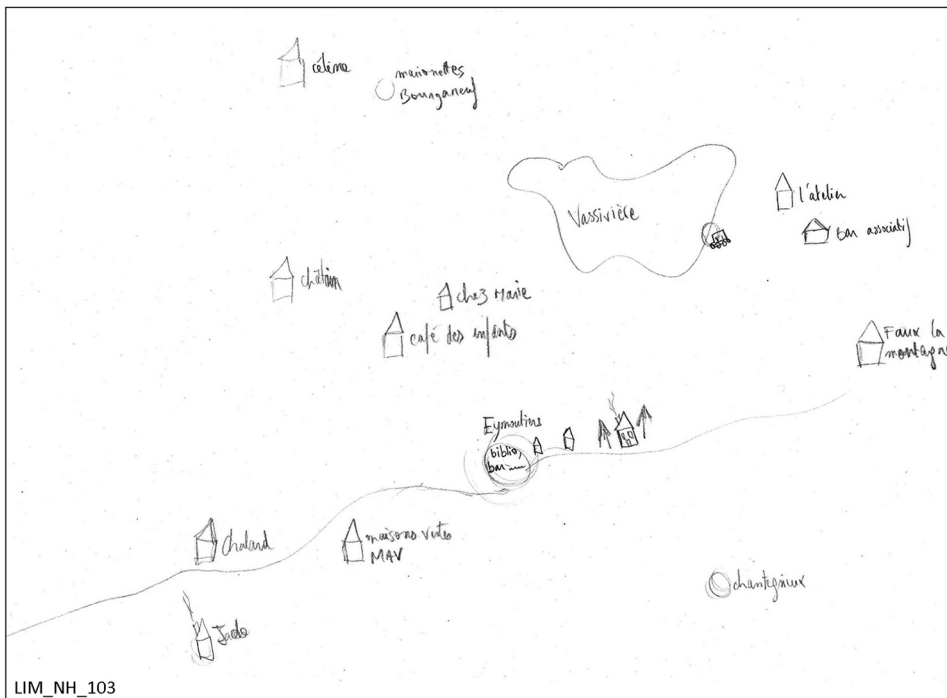 céline
marionnettes
Bourganeuf
l'atelier
Vassivière
bar associatif
châtain
chez Marie
café des enfants
Faux la
montagne
Eymoutiers
biblio,
bar
Chaland
maisons vertes
MAV
chantegrieux
Jado
LIM_NH_103